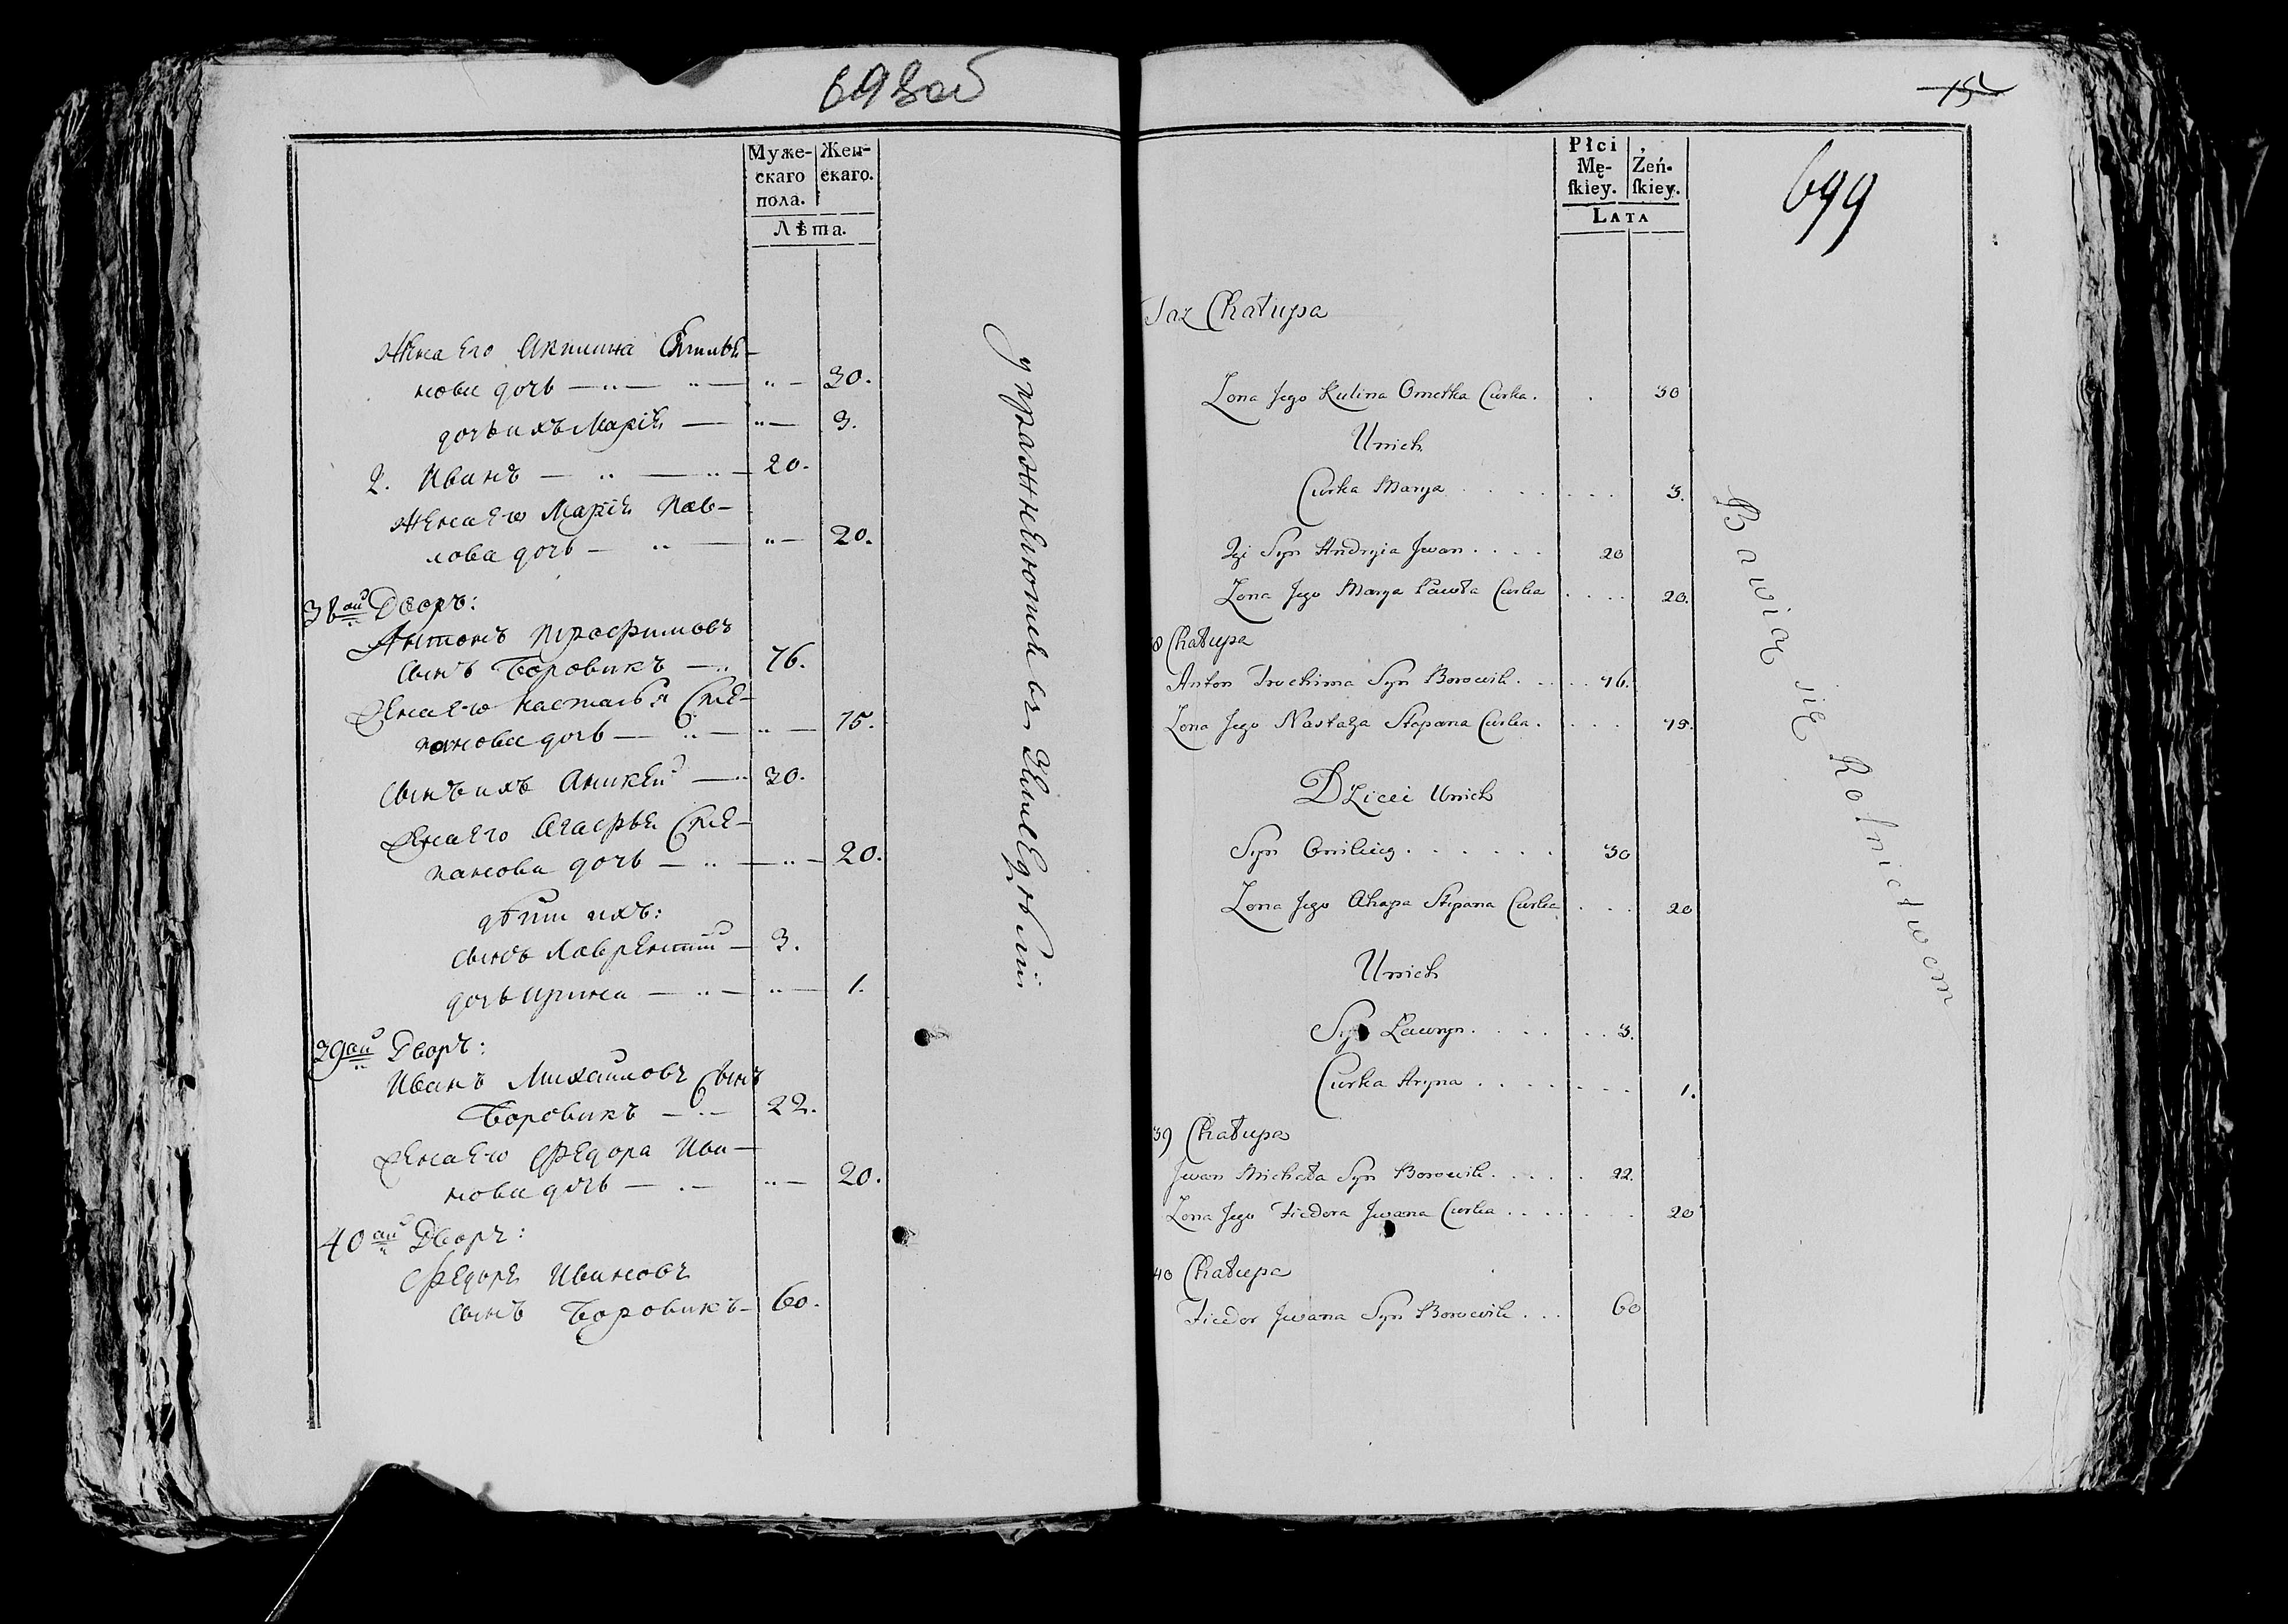 698об
Муже-
скаго
пола.
Жен-
скаго.
Лѣта.
Жена его Акилина Емилья-
нова дочь — „ — „ — „ — 30.
дочь ихъ Марія — „ — 3.
2. Иванъ — „ — „ — 20.
Жена его Марія Пав-
лова дочь — „ — „ — 20.
38ой Дворъ:
Антонъ Трофимовъ
сынъ Боровикъ — „ 76.
Жена его Настасья Сте-
панова дочь — „ — „ — 75.
сынъ ихъ Аникей — „ 30.
Жена его Агафья Сте-
панова дочь — „ — „ — 20.
дѣти ихъ:
сынъ Лаврентій — 3.
дочь Ирина — „ — „ — 1.
39ой Дворъ:
Иванъ Михайловъ сынъ
Боровикъ — „ — 22.
Жена его Федора Ива-
нова дочь — „ — „ — 20.
40ой Дворъ:
Федоръ Ивановъ
сынъ Боровикъ — 60.
упражняются въ земледѣліи
152
699
Płci
Mę-
ſkiey.
Żeń-
ſkiey.
LATA
Taż Chałupa
Zona Jego Kulina Omelka Curka . . 30
Unich
Curka Marya . . . . . . . 3.
2gi Syn Andryia Jwan . . . . 20
Zona Jego Marya Pawła Curka . . . . 20.
8 Chałupa
Anton Trochima Syn Borowik . . . . 76.
Zona Jego Nastazya Stepana Curka . . . . 75.
Dzieci Unich
Syn Onikiey . . . . . . 30
Zona Jego Ahapa Stepana Curka . . . 20
Unich
Syn Lawryn . . . . . . 3.
Curka Aryna . . . . . . . 1.
39 Chałupa
Jwan Michała Syn Borowik . . . . . 22.
Zona Jego Fiedora Jwana Curka . . . . . . 20
40 Chałupa
Fiedor Jwana Syn Borowik . . . 60
Bawią się Rolnictwem